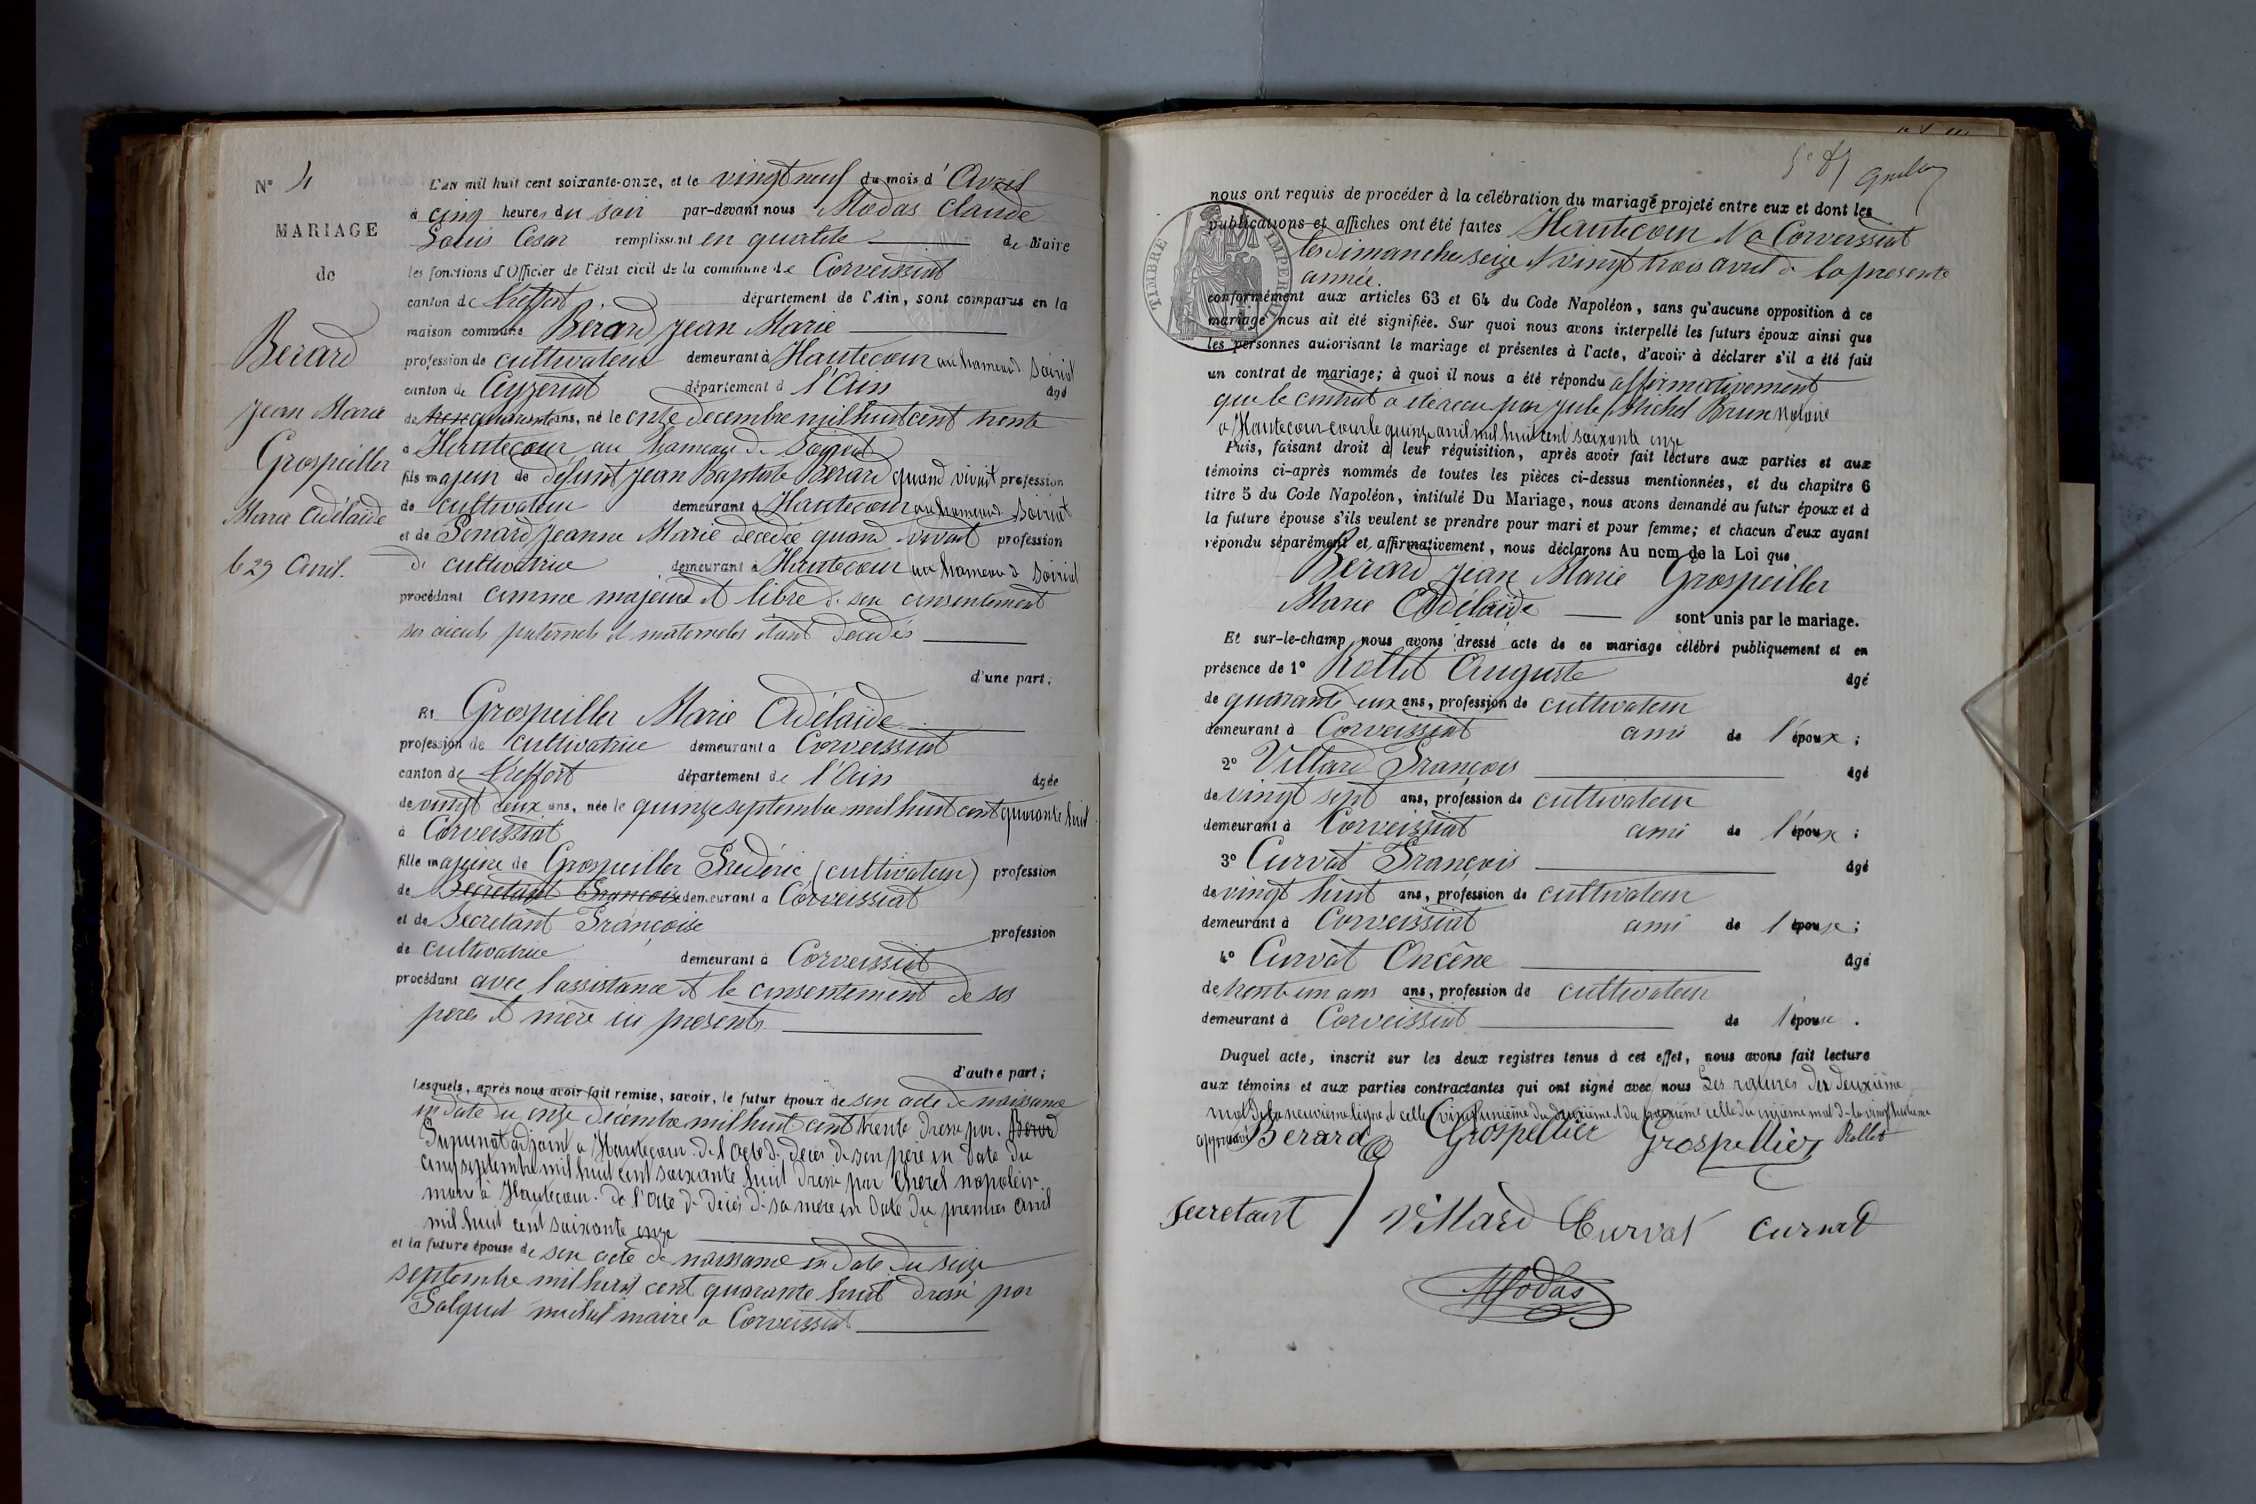 N° 4
MARIAGE
de
Berard
Jean Marie
Grospeiller
Marie Adélaïde
le 29 Avril.
L'an mil huit cent soixante-onze, et le vingt neuf du mois d'Avril
à cinq heures du soir par-devant nous Modas Claude
Louis Cesar remplissant en qualité de Maire
les fonctions d'Officier de l'état civil de la commune de Corveissiat
canton de Treffort département de l'Ain, sont comparus en la
maison commune Berard Jean Marie
profession de cultivateur demeurant à Hautecour au hameau d Soiriat
canton de Ceyzeriat département d l'Ain âgé
de quarante ans, né le onze decembre mil huit cent trente
à Hautecour au hameau de Soiriat
fils majeur de defunt Jean Baptiste Berard quand vivait profession
de cultivateur demeurant à Hautecour au hameau d Soiriat
et de Jeanne Marie décedée quand vivait profession
de cultivatrice demeurant à Hautecour au hameau d Soiriat
procédant comme majeur et libre de son consentement
ses aieuls paternels et maternels étant décedés
d'une part;
Et Grospeiller Marie Adélaïde
profession de cultivatrice demeurant à Corveissiat
canton de Treffort département de l'Ain âgée
de vingt deux ans, née le quinze septembre mil huit cent quarante huit
à Corveissiat
fille majeure de Grospeiller Frédéric (cultivateur) profession
de Secretant Francoise demeurant à Corveissiat
et de Secretant Françoise profession
de cultivatrice demeurant à Corveissiat
procédant avec l'assistance et le consentement de ses
peres et mère ici presents
d'autre part;
Lesquels, après nous avoir fait remise, savoir, le futur époux de son acte de naissance
en date du onze décembre mil huit cent trente dressé par Berard
adjoint a Hautecour. de l'acte de deces de son père en date du
cinq septembre mil huit cent soixante huit dressé par Cherel napoléon
maire à Hautecour. de l'acte de décès de sa mère en date du premier avril
mil huit cent soixante onze
et la future épouse de son acte de naissance en date du seize
septembre mil huit cent quarante huit dressé par
michel maire a Corveissiat
nous ont requis de procéder à la célébration du mariage projeté entre eux et dont les
publications et affiches ont été faites Hautecour et a Corveissiat
les dimanche seize et vingt trois avril de la presente
année.
TIMBRE IMPERIAL
conformément aux articles 63 et 64 du Code Napoléon, sans qu'aucune opposition à ce
mariage nous ait été signifiée. Sur quoi nous avons interpellé les futurs époux ainsi que
les personnes autorisant le mariage et présentes à l'acte, d'avoir à déclarer s'il a été fait
un contrat de mariage; à quoi il nous a été répondu affirmativement
que le contrat a ete recu par Michel Brun Notaire
a Hautecour le quinze avril mil huit cent soixante onze
Puis, faisant droit à leur réquisition, après avoir fait lecture aux parties et aux
témoins ci-après nommés de toutes les pièces ci-dessus mentionnées, et du chapitre 6
titre 5 du Code Napoléon, intitulé Du Mariage, nous avons demandé au futur époux et à
la future épouse s'ils veulent se prendre pour mari et pour femme; et chacun d'eux ayant
répondu séparément et affirmativement, nous déclarons Au nom de la Loi que
Berard Jean Marie Grospeiller
Marie Adélaïde sont unis par le mariage.
Et sur-le-champ nous avons dressé acte de ce mariage célébré publiquement et en
présence de 1° Rollet Auguste âgé
de quarante deux ans, profession de cultivateur
demeurant à Corveissiat ami de l'époux;
2° Villard François âgé
de vingt sept ans, profession de cultivateur
demeurant à Corveissiat ami de l'époux;
3° Curvat François âgé
de vingt huit ans, profession de cultivateur
demeurant à Corveissiat ami de l'épouse;
4° Curvat Oncêne âgé
de trente un ans ans, profession de cultivateur
demeurant à Corveissiat de l'épouse.
Duquel acte, inscrit sur les deux registres tenus à cet effet, nous avons fait lecture
aux témoins et aux parties contractantes qui ont signé avec nous Les ratures du deuxième
mot de la neuvième ligne et celle vingt unième du deuxième et du troisième celle du onzième mot de la vingt huitième
approuvé Berard Grospellier Grospellier Rollet
Secretant Villard Curvat Curvat
Modas